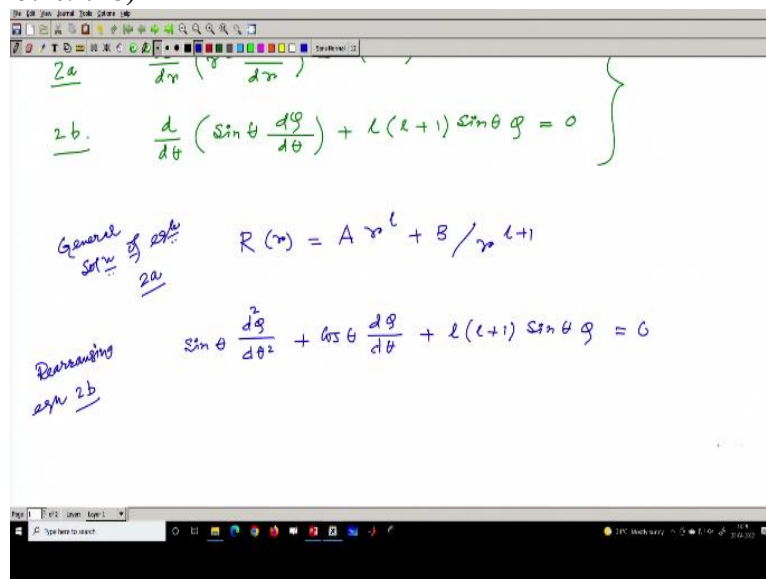 File Edit View Journal Tools Options Help
Sans Normal 12
2a d/dr (r
2b. d/dθ (Sin θ dφ/dθ) + l(l+1) Sin θ φ = 0
General Solⁿ of eqⁿ 2a R(r) = A r^l + B / r^{l+1}
Rearranging eqn 2b Sin θ d²φ/dθ² + Cos θ dφ/dθ + l(l+1) Sin θ φ = 0
Page 1 of 2 Layer: Layer 1
Type here to search